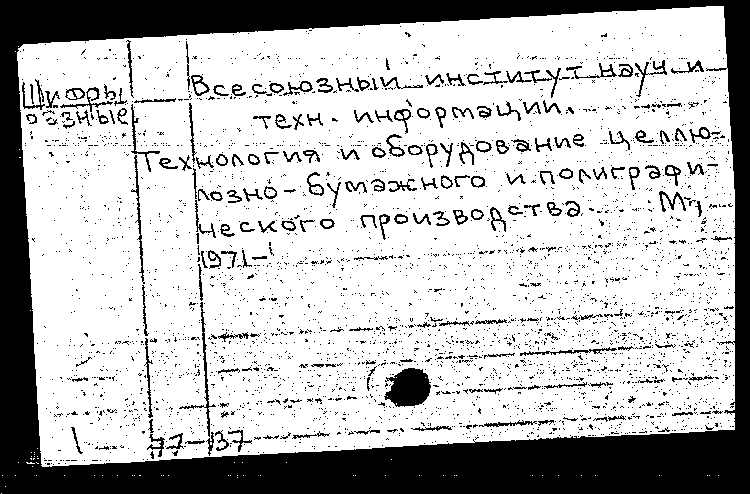 Шифры
разные.
Всесоюзный институт науч. и
техн. информации.
Технология и оборудование целлю-
лозно-бумажного и полиграфи-
ческого производства. М.,
1971-
77-137